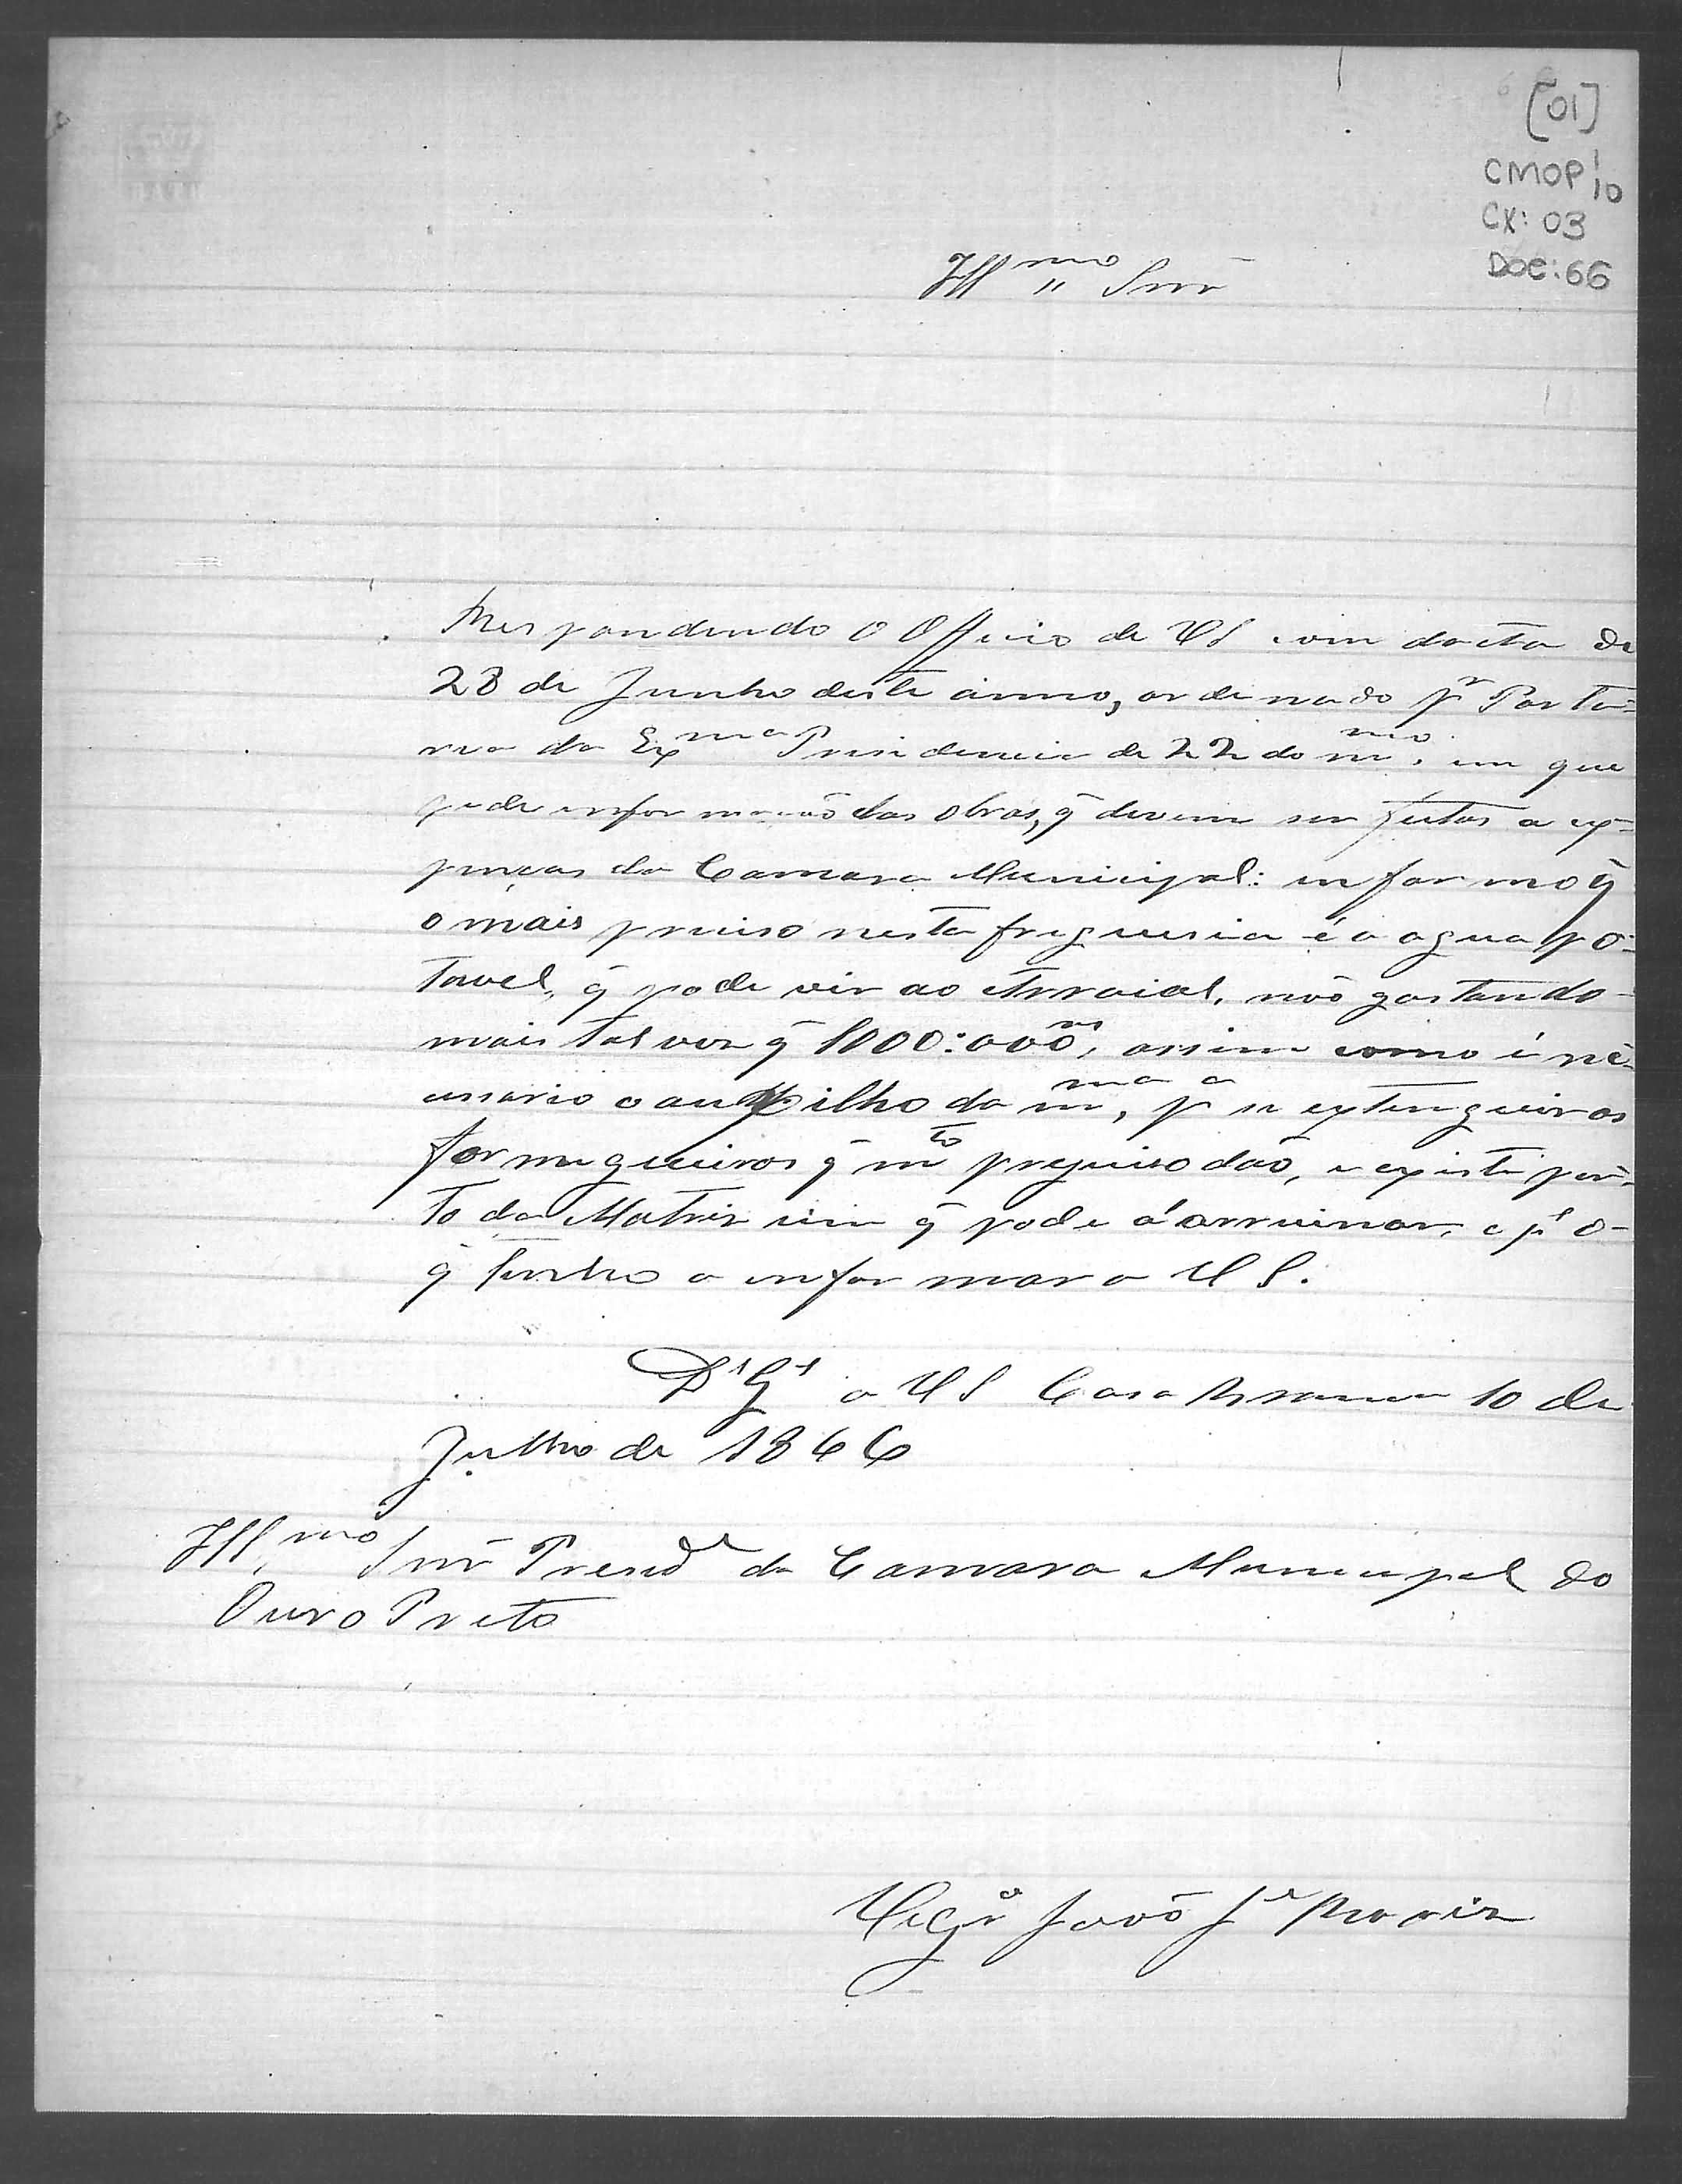 [01]
CMOP 1/10
CX: 03
DOC: 66
Ill.mo Snr̃
Respondendo o Officio de VS com dacta de
28 de Junho deste anno, ordenado pr Porta-
ria da Exma Presidencia de 22 do mmo. em que
pede informação das obras, q̃ devem ser feitas a ex-
penças da Camara Municipal: informo q̃
o mais preciso nesta freguesia é a agua po-
tavel, q̃ pode vir ao Arraial, não gastando
mais talvez q̃ 1000:000rs, assim como é ne-
cessario o auxilho da mma, pa se extinguir os
formigueiros q̃ mto prejuiso dão, e existe per-
to da Matriz um q̃ pode a arruinar, e é o
q̃ tenho a informar a VS.
Ds Ge a VS Casa Branca 10 de
Julho de 1866
Ill.mo Snr̃ Preside da Camara Municipal do
Ouro Preto
Vigro João Je